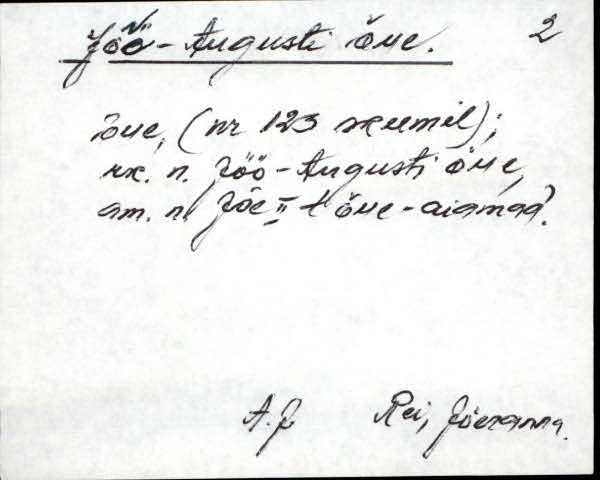 Jöö-Augusti õue. 2
õue, (nr 123 skeemil);
rk. n. Jöö-Augusti õue,
am. n. Jõe II t õue-aiamaa).
A. J Rei, Jõeranna.